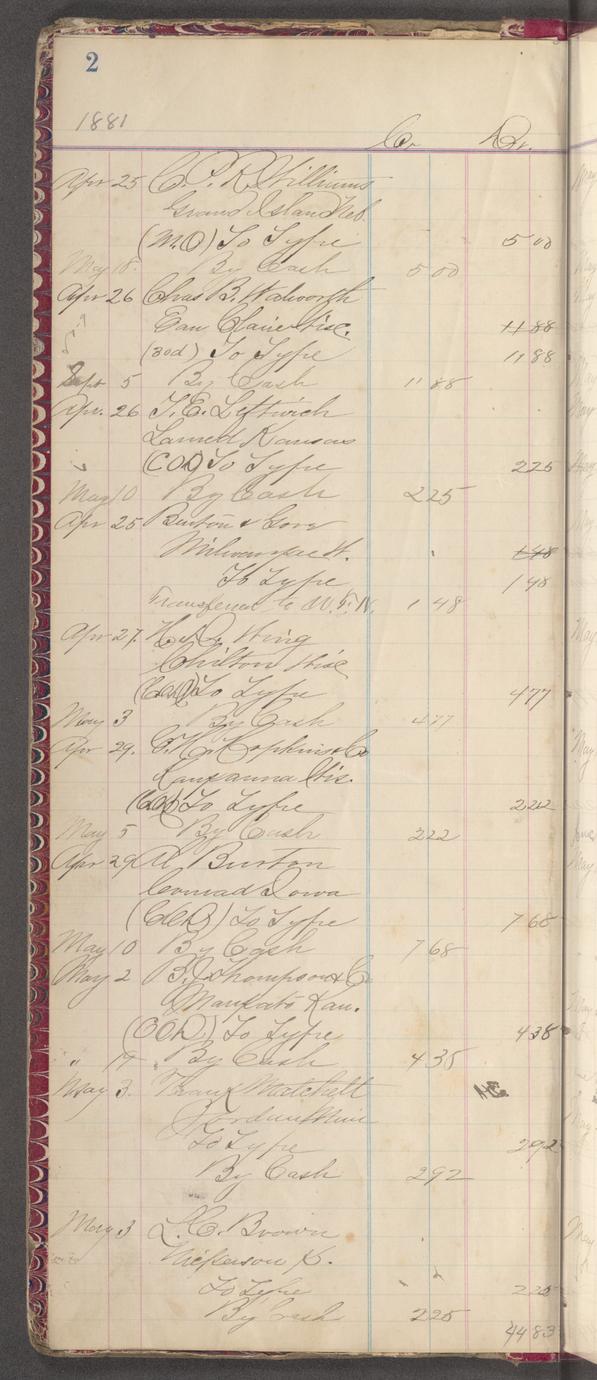 2
1881
Cr. Dr.
Apr 25 C. P. R. Williams
Grand Island Neb.
(M.O) To Type 500
May 18. By Cash 500
Apr 26 Chas B. Walworth
Eau Claire Wisc. 1188
(30d) To Type 1188
Sept 5 By Cash 1188
Apr. 26 T. E. Leftwich
Larned Kansas
(COD) To Type 225
May 10 By Cash 225
Apr 25 Burton &
Milwaukee St. 148
To Type 148
Transferred to W. F. N. 148
Apr 27. H. O. Wing
Chilton Wisc
(COD) To Type 477
May 3 By Cash 477
Apr 29. Hopkins & Co
Wis.
(COD) To Type 222
May 5 By Cash 222
Apr 29 Al Burton
Conrad Iowa
(COD) To Type 768
May 10 By Cash 768
May 2 B. Thompson & Co
Mankato Kan.
(COD) To Type 435
" 17 By Cash 435
May 3. Frank Matchett
Minn
To Type 292
By Cash 292
May 3 L. C. Brown
Nickerson K.
To Type 225
By Cash 225
4483